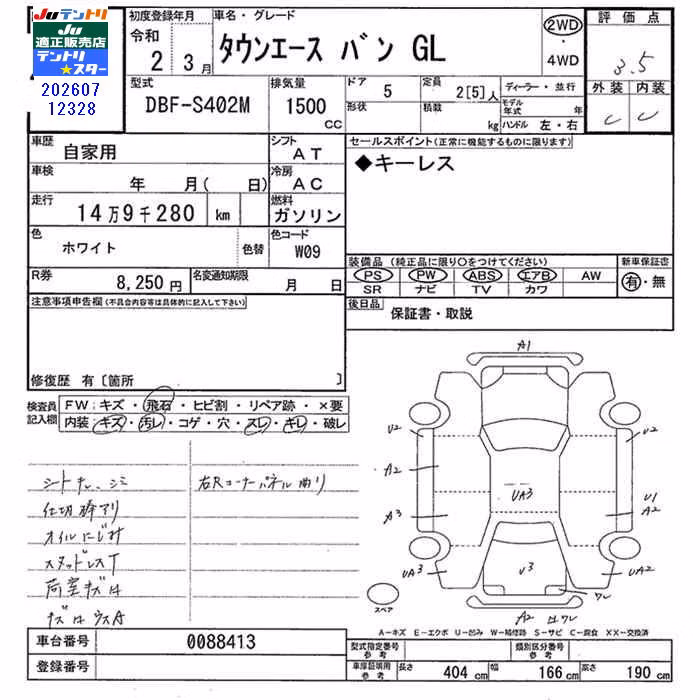 Juテントリ
Ju
適正販売店
テントリ
★スター
202607
12328
初度登録年月
令和
2 3月
車名・グレード
タウンエース バン GL
2WD
・
4WD
評価点
3.5
外装 内装
C C
型式
DBF-S402M
排気量
1500
CC
ドア
5
形状
定員
2[5]人
積載
kg
ディーラー・並行
モデル年式 年
ハンドル 左・右
車歴
自家用
シフト
AT
車検
年 月( 日)
冷房
AC
走行
14万9千280 km
燃料
ガソリン
色
ホワイト
色替
色コード
W09
R券
8,250円
名変通知期限
月 日
セールスポイント(正常に機能するものに限ります)
◆キーレス
装備品(純正品に限り○をつけてください)
PS PW ABS エアB AW
SR ナビ TV カワ
新車保証書
有・無
後日品
保証書・取説
注意事項申告欄(不具合内容等は具体的に記入して下さい)
修復歴 有〔箇所 〕
検査員
記入欄
FW:キズ・飛石・ヒビ割・リペア跡・×要
内装:キズ・汚レ・コゲ・穴・スレ・キレ・破レ
シートキレ、シミ
仕切棒アリ
オイルにじみ
スタッドレスT
荷室キズ凹
キズ凹ウスA
右Rコーナーパネル曲り
A1
U2
U2
A2
A3
UA3
U1
A2
UA3
V3
UA2
ワレ
A2 凹ワレ
スペア
A−キズ E−エクボ U−凹み W−補修跡 S−サビ C−腐食 XX−交換済
車台番号
0088413
登録番号
型式指定番号
参考
類別区分番号
参考
車庫証明用
参考
長さ 404 cm 幅 166 cm 高さ 190 cm